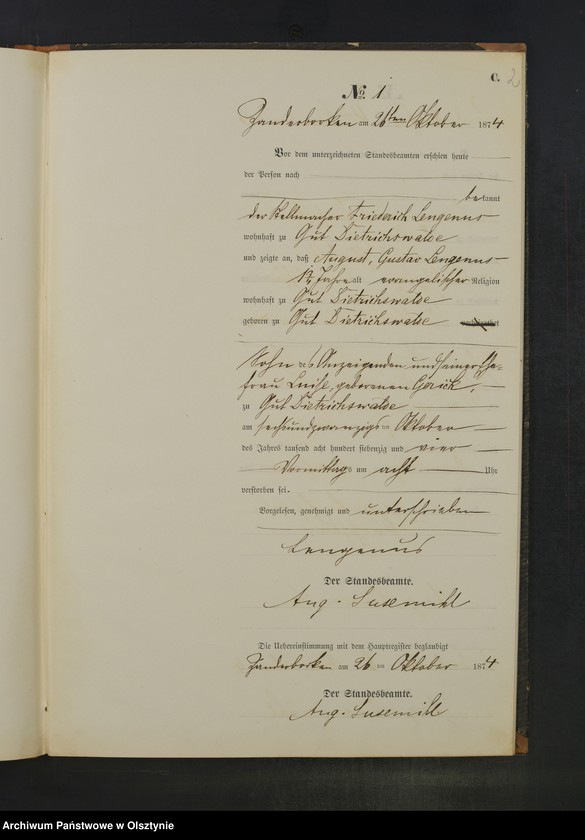 C. 2
No. 1
Zanderborken am 26ten Oktober 1874
Vor dem unterzeichneten Standesbeamten erschien heute
der Person nach
bekannt
der Friederich Lengenus
wohnhaft zu Gut Dietrichswalde
und zeigte an, daß August, Gustav Lengenus
Jahre alt evangelischer Religion
wohnhaft zu Gut Dietrichswalde
geboren zu Gut Dietrichswalde
Sohn des Anzeigenden und seiner Ehe-
frau Luise, geborenen Gerick,
zu Gut Dietrichswalde
am sechsundzwanzigs ten Oktober
des Jahres tausend acht hundert siebenzig und vier
Vormittag s um acht Uhr
verstorben sei.
Vorgelesen, genehmigt und unterschrieben
Lengenus
Der Standesbeamte.
Aug. Susemihl
Die Uebereinstimmung mit dem Hauptregister beglaubigt
Zanderborken am 26 ten Oktober 1874
Der Standesbeamte.
Aug. Susemihl
Archiwum Państwowe w Olsztynie